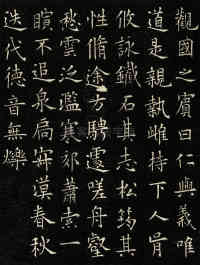 觀國之賓曰仁與義唯
道是親執雌持下人肩
攸詠鐵石其志松筠其
性脩途方騁遽嗟丹壑
愁雲之濫寒郊蕭索一
瞑不追泉扃寂漠春秋
迭代德音無爍